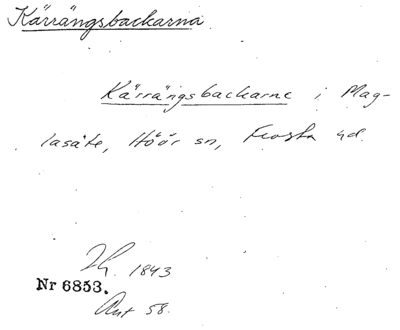 Kärrängsbackarna
Kärrängsbackarne i Mag-
lasäte, Höör sn, Frosta hd.
1843
Nr 6853.
Ant 58.